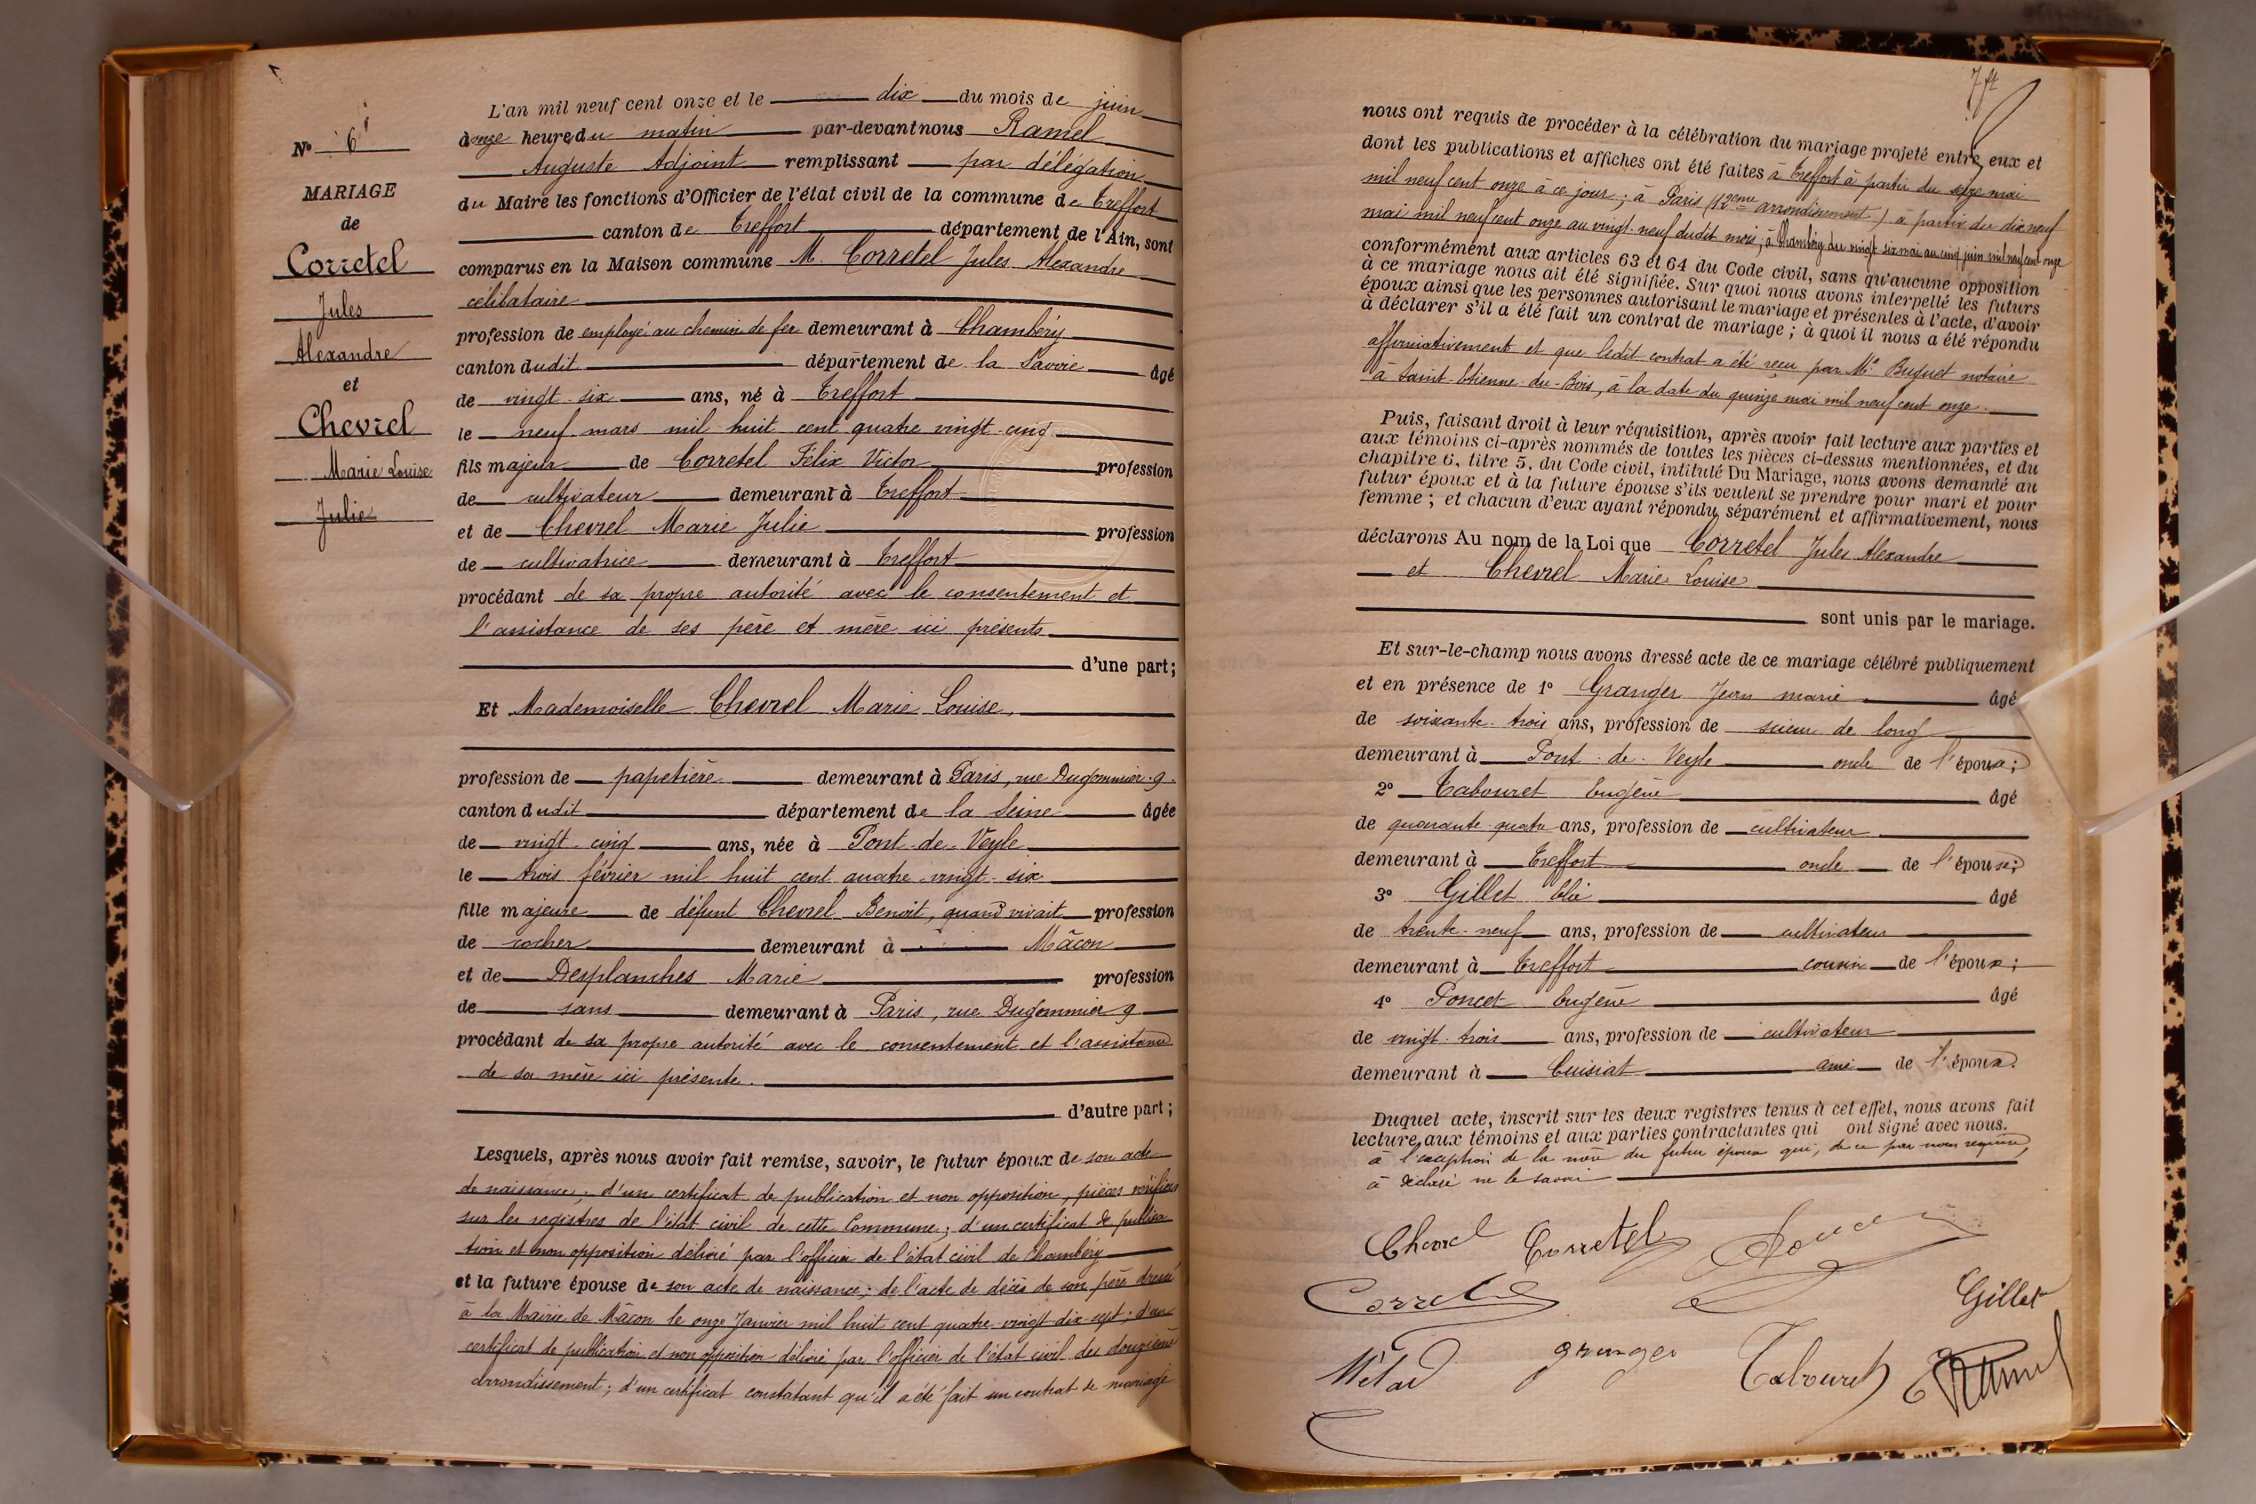 N° 6
MARIAGE
de
Corretel
Jules
Alexandre
et
Chevrel
Marie Louise
Julie
L'an mil neuf cent onze et le dix du mois de juin
à onze heure du matin par-devant nous Ramel
Auguste Adjoint remplissant par délégation
du Maire les fonctions d'Officier de l'état civil de la commune de Treffort
canton de Treffort département de l'Ain, sont
comparus en la Maison commune M. Corretel Jules Alexandre
célibataire
profession de employé au chemin de fer demeurant à Chambéry
canton dudit département de la Savoie âgé
de vingt-six ans, né à Treffort
le neuf mars mil huit cent quatre vingt-cinq
fils majeur de Corretel Félix Victor profession
de cultivateur demeurant à Treffort
et de Chevrel Marie Julie profession
de cultivatrice demeurant à Treffort
procédant de sa propre autorité avec le consentement et
l'assistance de ses père et mère ici présents
d'une part;
Et Mademoiselle Chevrel Marie Louise
profession de papetière demeurant à Paris, rue Dugommier 9.
canton dudit département de la Seine âgée
de vingt-cinq ans, née à Pont-de-Veyle
le trois février mil huit cent quatre-vingt-six
fille majeure de défunt Chevrel Benoit, quand vivait profession
de cocher demeurant à Mâcon
et de Desplanches Marie profession
de sans demeurant à Paris, rue Dugommier 9
procédant de sa propre autorité avec le consentement et l'assistance
de sa mère ici présente.
d'autre part;
Lesquels, après nous avoir fait remise, savoir, le futur époux de son acte
de naissance; d'un certificat de publication et non opposition, pièces vérifiées
sur les registres de l'état civil de cette Commune; d'un certificat de publica
tion et non opposition délivré par l'officier de l'état civil de Chambéry
et la future épouse de son acte de naissance; de l'acte de décès de son père dressé
à la Mairie de Mâcon le onze Janvier mil huit cent quatre-vingt-dix-sept; d'un
certificat de publication et non opposition délivré par l'officier de l'état civil du douzième
arrondissement; d'un certificat constatant qu'il a été fait un contrat de mariage
nous ont requis de procéder à la célébration du mariage projeté entre eux et
dont les publications et affiches ont été faites à Treffort à partir du seize mai
mil neuf cent onze à ce jour; à Paris (12eme arrondissement) à partir du dix neuf
mai mil neuf cent onze au vingt-neuf dudit mois; à Chambéry du vingt six mai au cinq juin mil neuf cent onze
conformément aux articles 63 et 64 du Code civil, sans qu'aucune opposition
à ce mariage nous ait été signifiée. Sur quoi nous avons interpellé les futurs
époux ainsi que les personnes autorisant le mariage et présentes à l'acte, d'avoir
à déclarer s'il a été fait un contrat de mariage; à quoi il nous a été répondu
affirmativement et que ledit contrat a été reçu par Me Buguet notaire
à Saint-Etienne-du-Bois, à la date du quinze mai mil neuf cent onze.
Puis, faisant droit à leur réquisition, après avoir fait lecture aux parties et
aux témoins ci-après nommés de toutes les pièces ci-dessus mentionnées, et du
chapitre 6, titre 5, du Code civil, intitulé Du Mariage, nous avons demandé au
futur époux et à la future épouse s'ils veulent se prendre pour mari et pour
femme; et chacun d'eux ayant répondu séparément et affirmativement, nous
déclarons Au nom de la Loi que Corretel Jules Alexandre
et Chevrel Marie Louise
sont unis par le mariage.
Et sur-le-champ nous avons dressé acte de ce mariage célébré publiquement
et en présence de 1° Granger Jean marie âgé
de soixante-trois ans, profession de scieur de long
demeurant à Pont-de-Veyle oncle de l'épouse;
2° Tabouret Eugène âgé
de quarante-quatre ans, profession de cultivateur
demeurant à Treffort oncle de l'épouse;
3° Gillet Elie âgé
de trente-neuf ans, profession de cultivateur
demeurant à Treffort cousin de l'époux;
4° Poncet Eugène âgé
de vingt-trois ans, profession de cultivateur
demeurant à Cuisiat ami de l'époux.
Duquel acte, inscrit sur les deux registres tenus à cet effet, nous avons fait
lecture aux témoins et aux parties contractantes qui ont signé avec nous.
à l'exception de la mère du futur époux qui, de ce par nous requise,
a déclaré ne le savoir
Chevrel Corretel
Corretel Gillet
granger Tabouret Ramel